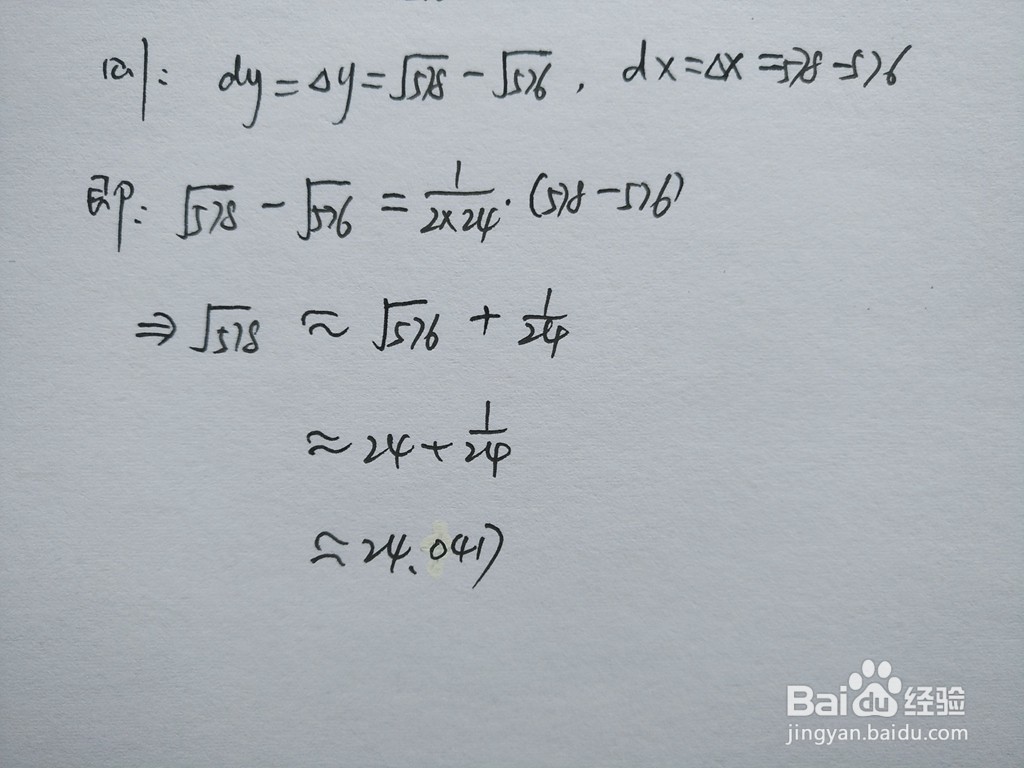 则: dy=Δy=√578-√576, dx=Δx=578-576
即: √578-√576=1/(2×24)·(578-576)
⇒√578≈√576+1/24
≈24+1/24
≈24.0417
Baidu经验
jingyan.baidu.com